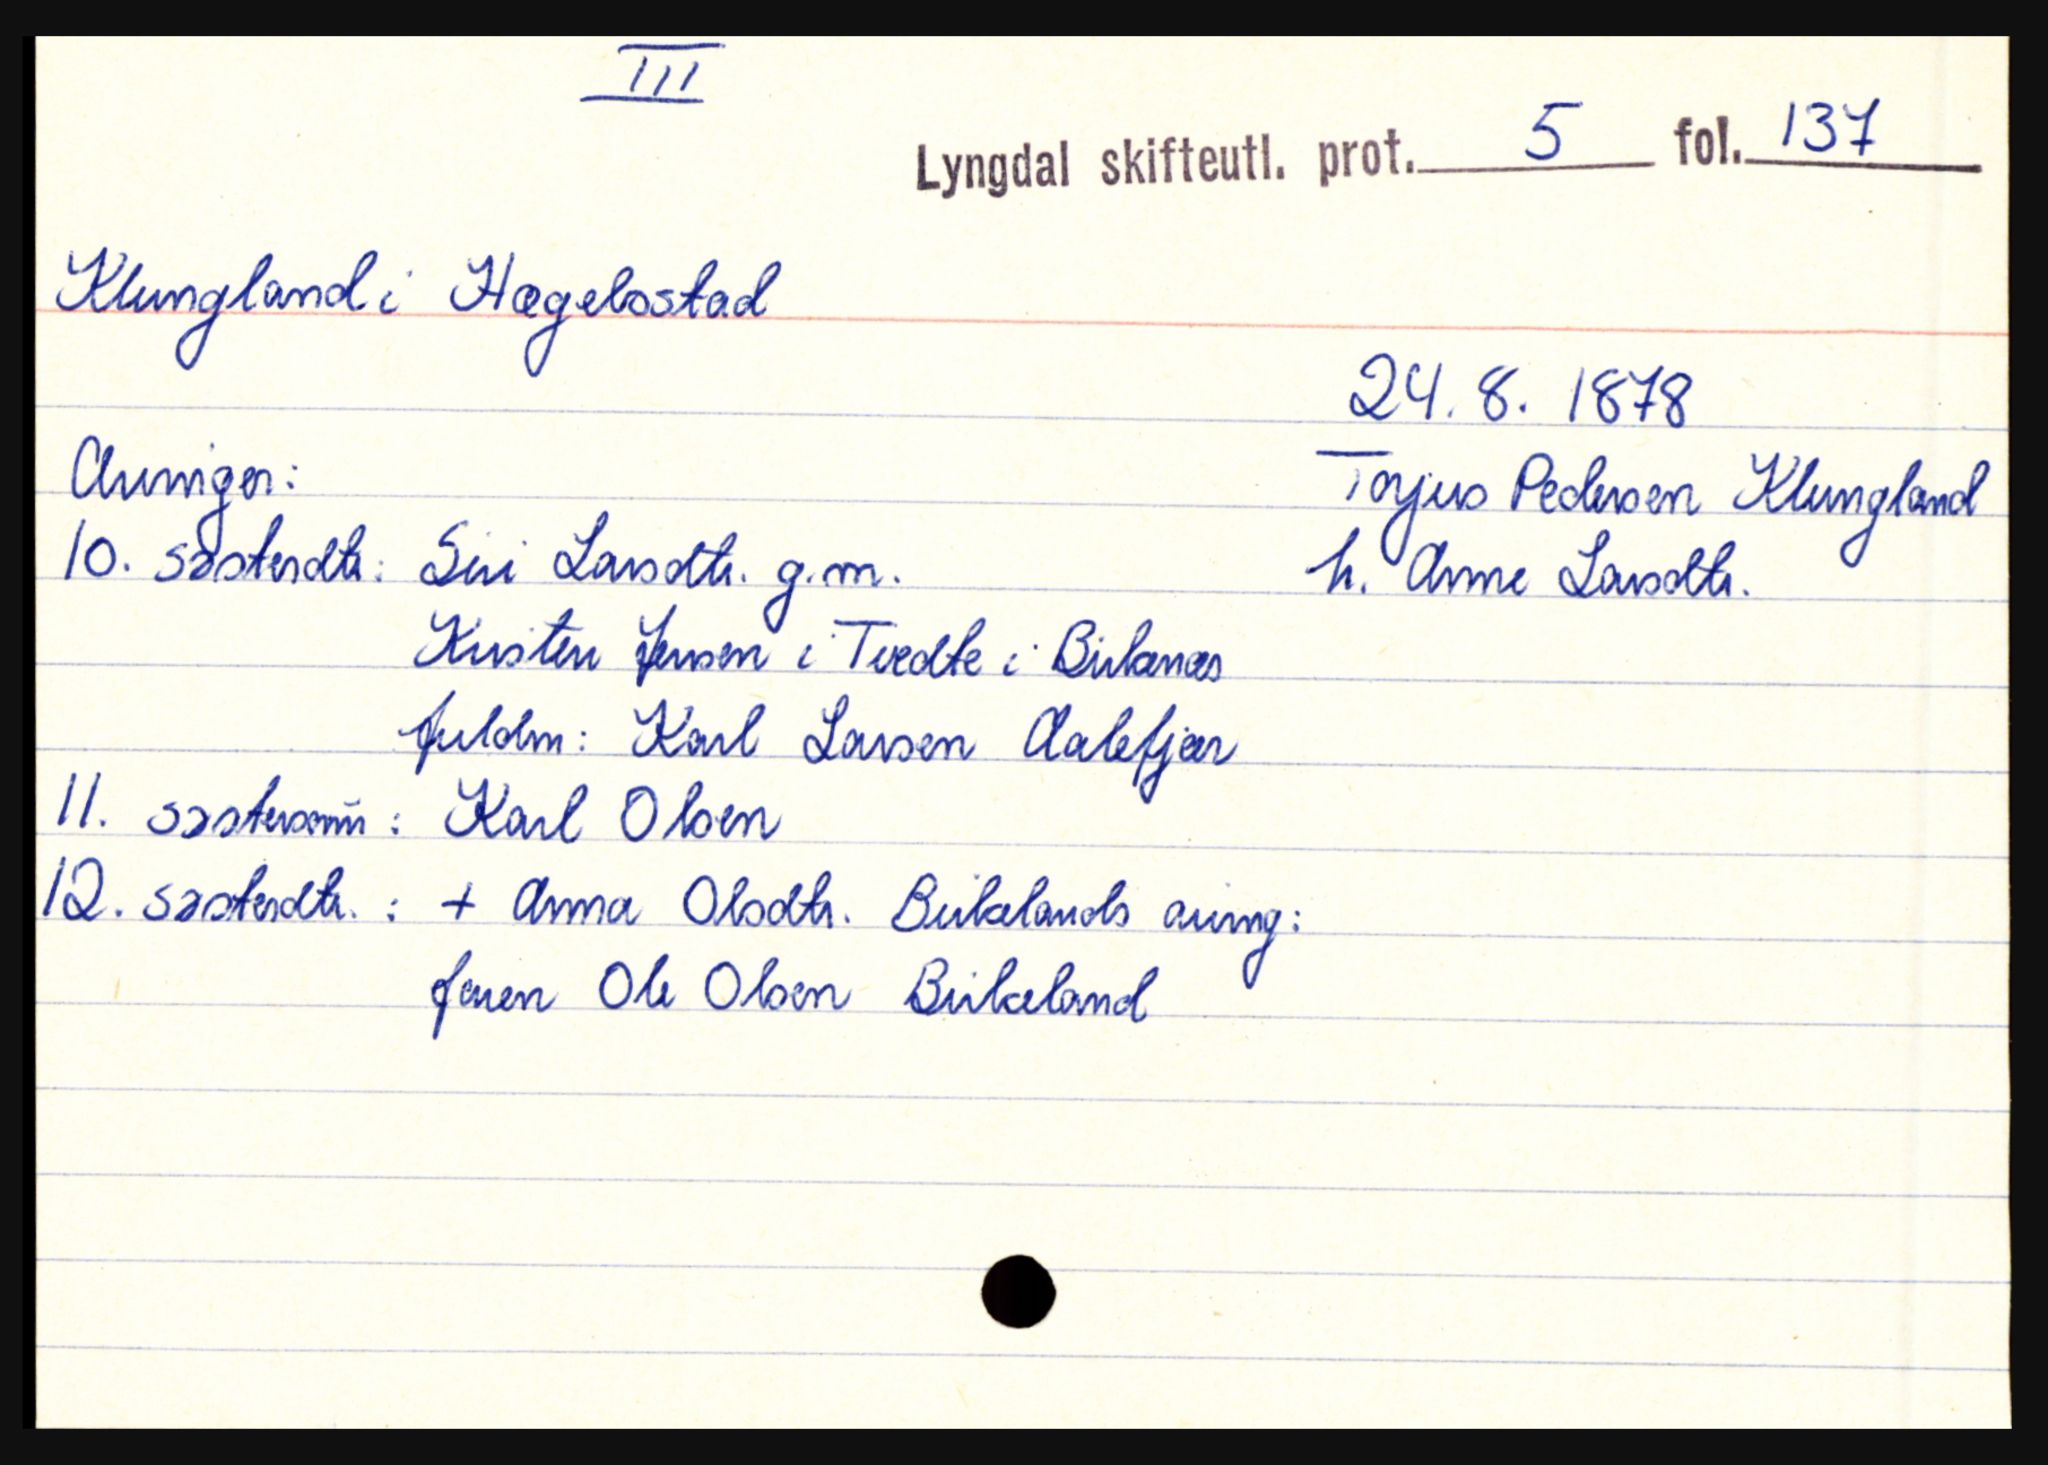 III
Lyngdal skifteutl. prot. 5 fol. 137
Klungland i Hægebostad
24.8.1878
Arvinger:
Torjus Pedersen Klungland
10. søsterdtr: Siri Larsdtr. g.m.
h. Anne Larsdtr.
Kristen Jensen i Tvedte i Birkenæs
fuldm: Karl Larsen Aalefjær
11. søstersønn: Karl Olsen
12. søsterdtr.: + Anna Olsdtr. Birkelands arving:
faren Ole Olsen Birkeland